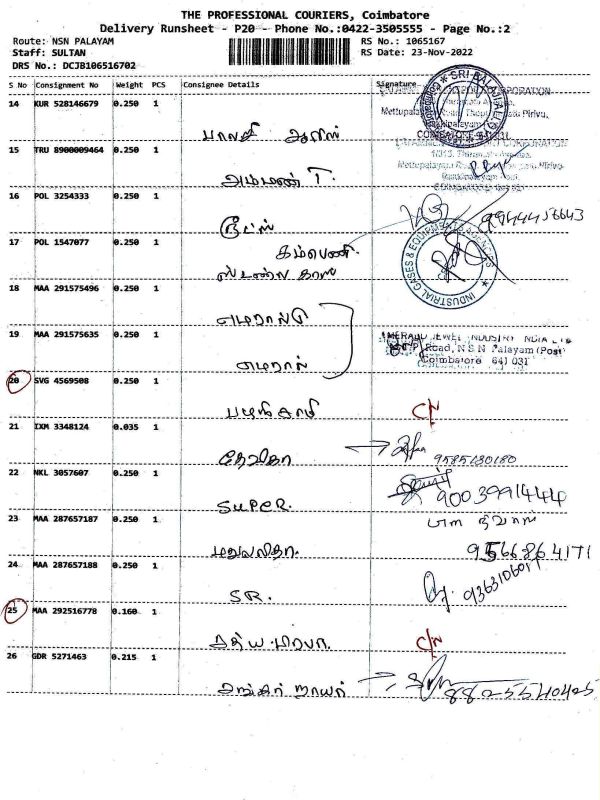 THE PROFESSIONAL COURIERS, Coimbatore
Delivery Runsheet - P20 - Phone No.:0422-3505555 - Page No.:2
Route: NSN PALAYAM RS No.: 1065167
Staff: SULTAN RS Date: 23-Nov-2022
DRS No.: DCJB106516702
S No Consignment No Weight PCS Consignee Details Signature
14 KUR 528146679 0.250 1
SRI BALAJI
15 TRU 8900009464 0.250 1
அம்மன் T.
16 POL 3254333 0.250 1
99444 56643
17 POL 1547077 0.250 1
கம்பெனி
INDUSTRIAL GASES & EQUIPMENTS AGENCIES
18 MAA 291575496 0.250 1
எமரால்டு
19 MAA 291575635 0.250 1
EMERALD JEWEL INDUSTRY INDIA LTD
Road, N.S.N Palayam (Post)
Coimbatore 641 031
எமரால்
20 SVG 4569508 0.250 1
பழனிசாமி C/N
21 IXM 3348124 0.035 1
தேவிகா 9585130180
22 NKL 3057607 0.250 1
SUPER. 9003991444
23 MAA 287657187 0.250 1
9566864171
24 MAA 287657188 0.250 1
SR. 9363106011
25 MAA 292516778 0.160 1
சத்யபிரபா. C/N
26 GDR 5271463 0.215 1
சங்கர் நாயர் 8825540425